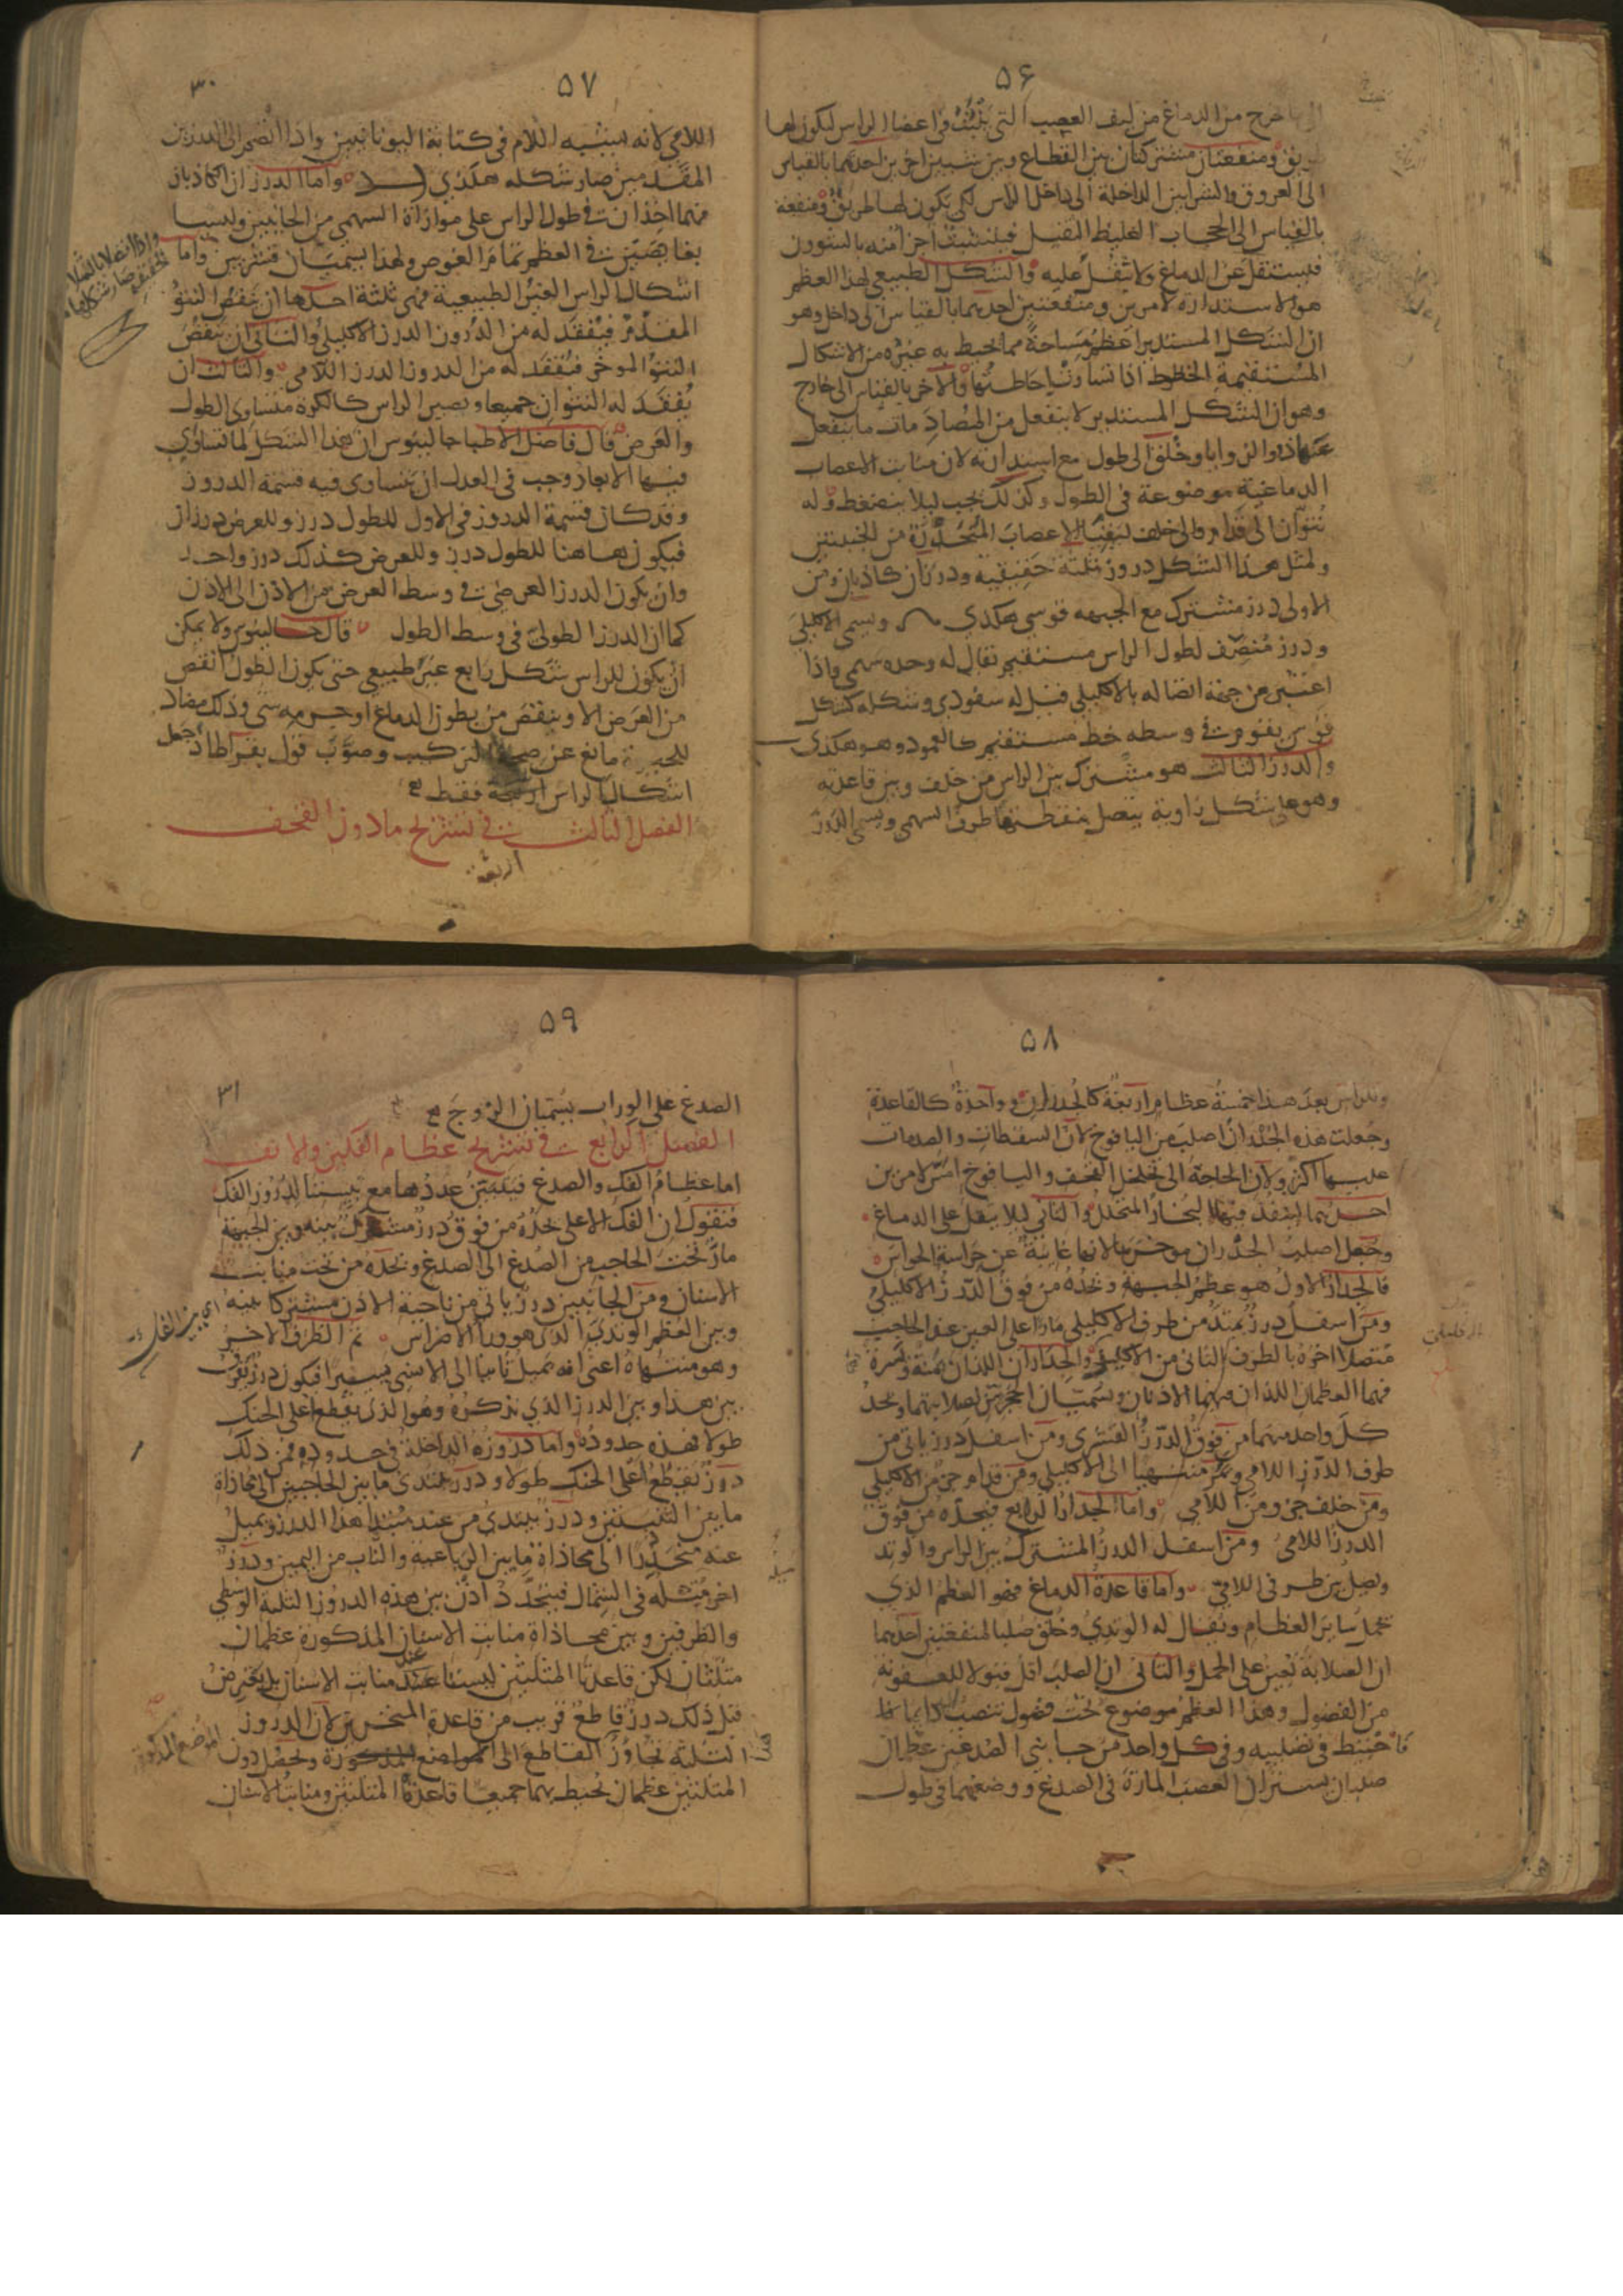 ٥۶
ما خرج من الدماغ من ليف العصب التي تنبت في اعضا الراس ليكون لها
طريق ومنفعتان مشتركتان بين القطاع وبين شيين اخرين احدهما بالقياس
الى العروق والشرايين الداخلة الى داخل الراس لكي يكون لها طريق ومنفعة
بالقياس الى الحجاب الغليظ الثقيل فيتشبث اجزا منه بالشوون
فيستقل عن الدماغ ولا يثقل عليه والشكل الطبيعي لهذا العظم
هو الاستدارة لامرين ومنفعتين احدهما بالقياس الى داخل وهو
ان الشكل المستدير اعظم مساحة مما يحيط به غيره من الاشكال
المستقيمة الخطوط اذا تساوت احاطتها والاخر بالقياس الى خارج
وهو ان الشكل المستدير لا ينفعل من المصادمات ما ينفعل
عنها ذو الزوايا وخلق الى طول مع استدارته لان منابت الاعصاب
الدماغية موضوعة في الطول وكذلك يجب ليلا ينضغط وله
نتوان الى قدام والى خلف ليقيا الاعصاب المنحدرة من الجنبتين
ولمثل هذا الشكل دروز ثلثة حقيقية ودرزان كاذبان ومن
الاولى درز مشترك مع الجبهه قوسي هكذي ويسمى الاكليلي
ودرز منصف لطول الراس مستقيم يقال له وحده سهمي واذا
اعتبر من جهة اتصاله بالاكليلي قيل له سفودي وشكله كشكل
قوس يقوم في وسطه خط مستقيم كالعمود وهو هكذى
والدرز الثالث هو مشترك بين الراس من خلف وبين قاعدته
وهو على شكل زاوية يتصل بنقطتها طرف السهمي ويسمى الدرز
٥٧
٣٠
اللامي لانه يشبه اللام في كتابة اليونانيين واذا انضم الى الدرزين
المقدمين صار شكله هكذي واما الدرزان الكاذبان
فهما اخذان في طول الراس على موازاة السهمي من الجانبين وليسا
بغايصين في العظم تمام الغوص ولهذا يسميان قشريين واما
اشكال الراس الغير الطبيعية فهي ثلثة احدها ان ينقص النتو
المقدم فيفقد له من الدروز الدرز الاكليلي والثاني ان ينقص
النتو الموخر فيفقد له من الدروز الدرز اللامي والثالث ان
يفقد له النتوان جميعا ويصير الراس كالكرة متساوي الطول
والعرض قال فاضل الاطبا جالينوس ان هذا الشكل لما تساوى
فيها الابعاد وجب في العدل ان يتساوى فيه قسمة الدروز
وقد كان قسمة الدروز في الاول للطول درز وللعرض درزان
فيكون هاهنا للطول درز وللعرض كذلك درز واحد
وان يكون الدرز العرضي في وسط العرض من الاذن الى الاذن
كما ان الدرز الطولي في وسط الطول قال جالينوس ولا يمكن
ان يكون للراس شكل رابع غير طبيعي حتى يكون الطول انقص
من العرض الا وينقص من بطون الدماغ او جرمه شي وذلك مضاد
للحيوة مانع عن صحة التركيب وصوب قول بقراط اذ جعل
اشكال الراس اربعة فقط
الفصل الثالث في تشريح ما دون القحف
اربعة
واذا اتصلا بالثلاثة
الحقيقية صار شكلها
٥٨
وللراس بعد هذا خمسة عظام اربعة كالجدران وواحدة كالقاعدة
وجعلت هذه الجدران اصلب من اليافوخ لان السقطات والصدمات
عليها اكثر ولان الحاجة الى تخلخل القحف واليافوخ امس لامرين
احدهما لينفذ فيها البخار المتحلل والثاني ليلا يثقل على الدماغ
وجعل اصلب الجدران موخرها لانها غايبة عن حراسة الحواس
فالجدار الاول هو عظم الجبهة ويحده من فوق الدرز الاكليلي
ومن اسفل درز يمتد من طرف الاكليلي مارا على العين عند الحاجب
متصلا اخره بالطرف الثاني من الاكليلي والجداران اللذان يمنة ويسرة
فهما العظمان اللذان فيهما الاذنان ويسميان الحجريين لصلابتهما ويحد
كل واحد منهما من فوق الدرز القشري ومن اسفل درز ياتي من
طرف الدرز اللامي ويمر منتهيا الى الاكليلي ومن قدام جزء من الاكليلي
ومن خلف جزء من اللامي واما الجدار الرابع فيحده من فوق
الدرز اللامي ومن اسفل الدرز المشترك بين الراس والوتد
ويصل بين طرفي اللامي واما قاعدة الدماغ فهو العظم الذي
يحمل ساير العظام ويقال له الوتدي وخلق صلبا لمنفعتين احدهما
ان الصلابة تعين على الحمل والثاني ان الصلب اقل قبولا للعفونة
من الفضول وهذا العظم موضوع تحت فضول تنصب دايما
فاحتيط في تصليبه وفي كل واحد من جانبي الصدغين عظمان
صلبان يستران العصب المارة في الصدغ ووضعهما في طول
٥٩
٣١
الصدغ على الوراب يسميان الزوج
الفصل الرابع في تشريح عظام الفكين والانف
اما عظام الفك والصدغ فيتبين عددها مع تبيننا لدروز الفك
فنقول ان الفك الاعلى يحده من فوق درز مشترك بينه وبين الجبهة
مار تحت الحاجب من الصدغ الى الصدغ ويحده من تحت منابت
الاسنان ومن الجانبين درز ياتي من ناحية الاذن مشتركا بينه
وبين العظم الوتدي الذي هو ورا الاضراس ثم الطرف الاخر
وهو منتهاه اعنى انه يميل ثانيا الى الانسي يسيرا فيكون درز يفرق
بين هذا وبين الدرز الذي نذكره وهو الذي يقطع اعلى الحنك
طولا فهذه حدوده واما دروزه الداخلة في حدوده فمن ذلك
درز يقطع اعلى الحنك طولا ودرز يبتدى ما بين الحاجبين الى محاذاة
ما بين الثنيتين ودرز يبتدي من عند مبتدا هذا الدرز ويميل
عنه منحدرا الى محاذاة ما بين الرباعية والناب من اليمين ودرز
اخر مثله في الشمال فيتحدد اذن بين هذه الدروز الثلثة الوسطي
والطرفين وبين محاذاة منابت الاسنان المذكورة عظمان
مثلثان لكن قاعدتا المثلثين ليستا عند منابت الاسنان بل يعترض
قبل ذلك درز قاطع قريب من قاعدة المنخرين لان الدروز
الثلثة تجاوز القاطع الى المواضع المذكورة ويحصل دون
المثلثين عظمان يحيط بهما جميعا قاعدة المثلثين ومنابت الاسنان
المواضع المذكورة